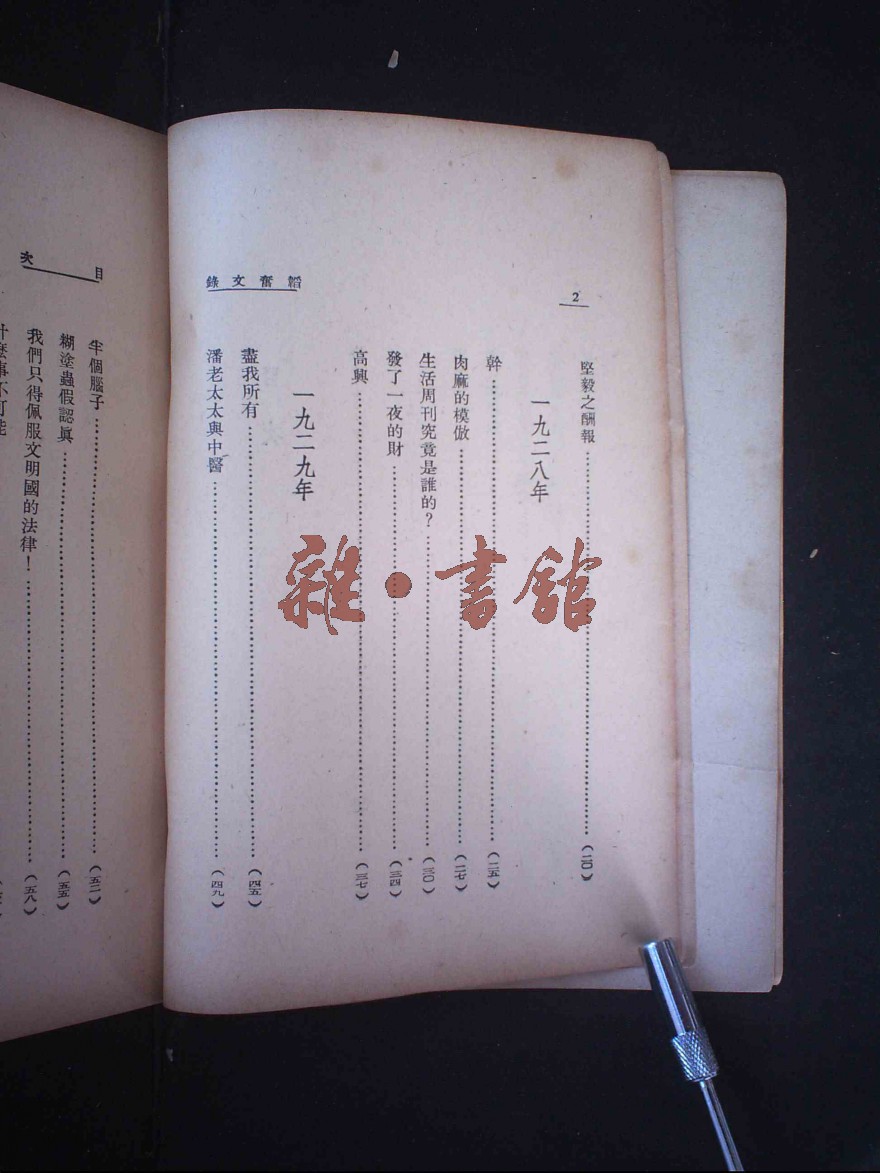 韜奮文錄
2
堅毅之酬報……(二〇)
一九二八年
幹……(二五)
肉麻的模倣……(二七)
生活周刊究竟是誰的？……(三〇)
發了一夜的財……(三四)
高興……(三七)
一九二九年
盡我所有……(四五)
潘老太太與中醫……(四九)
目次
半個腦子……(五二)
糊塗蟲假認眞……(五五)
我們只得佩服文明國的法律！……(五八)
什麽事不可能
雜·書館